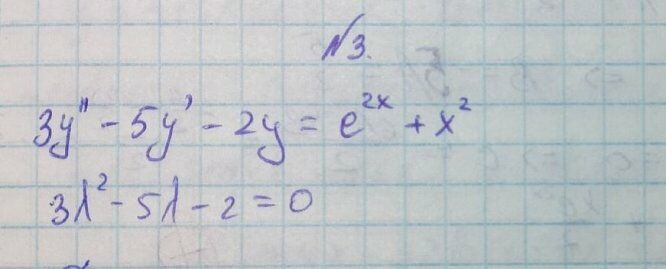 №3.
3y'' - 5y' - 2y = e^{2x} + x^2
3λ^2 - 5λ - 2 = 0